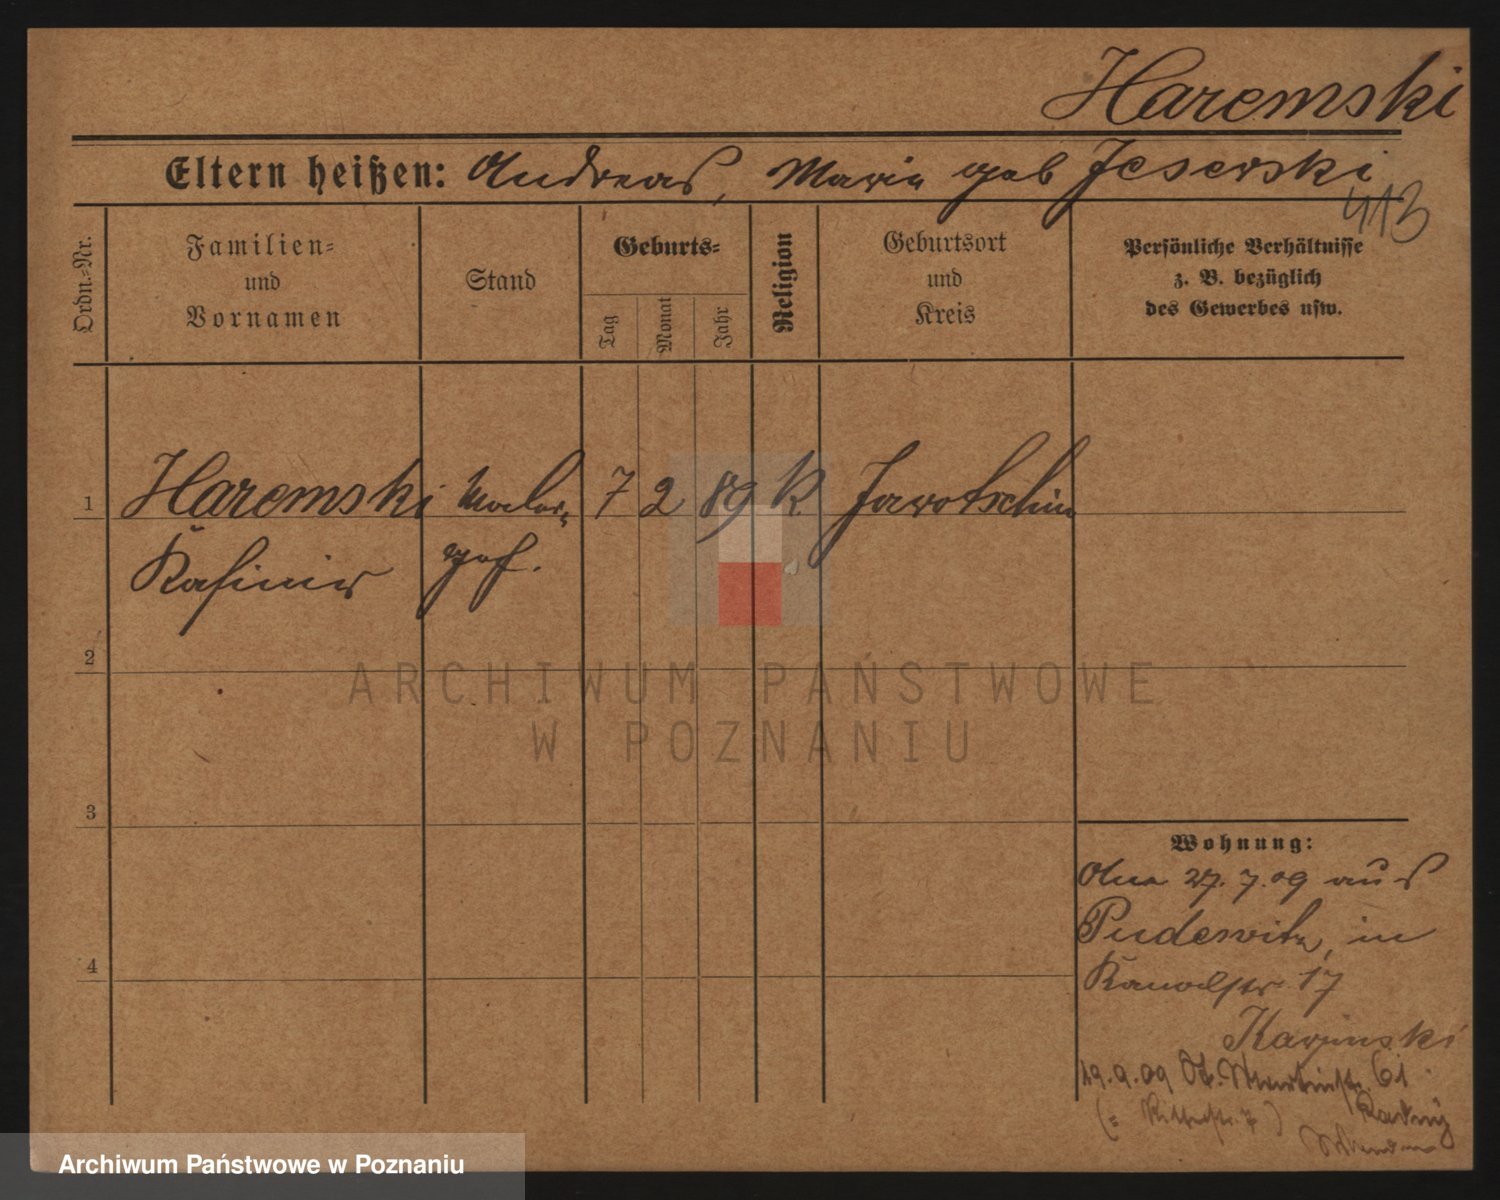 Haremski
Eltern heißen: Andreas, Marie geb Jeserski
413
Ordn.-Nr.
Familien-
und
Vornamen
Stand
Geburts-
Tag
Monat
Jahr
Religion
Geburtsort
und
Kreis
Persönliche Verhältnisse
z. B. bezüglich
des Gewerbes usw.
1 Haremski Maler- 7 2 89 K. Jarotschin
Kasimir geh.
2
3
4
Wohnung:
27. 7. 09 aus
Pudewitz, in
Kanalstr 17
Karpinski
29.9.09 St. Martinstr. 61
ARCHIWUM PAŃSTWOWE
W POZNANIU
Archiwum Państwowe w Poznaniu